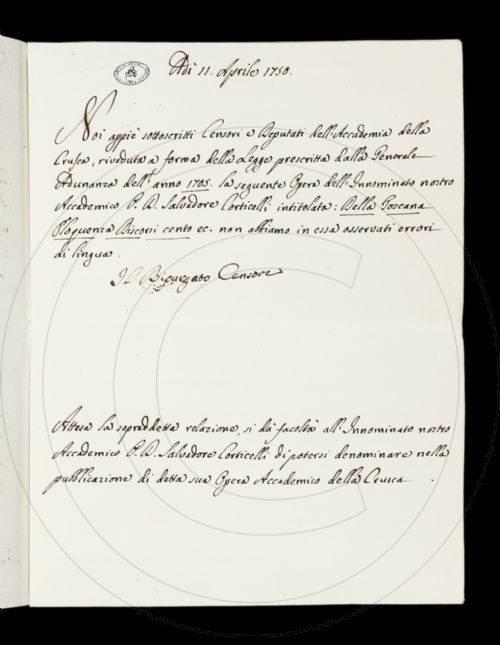 Adì 11. Aprile 1750.
Noi appiè sottoscritti Censori e Deputati dell'Accademia della
Crusca, riveduta a forma della Legge prescritta dalla Generale
Adunanza dell'anno 1705. la seguente Opera dell'Innominato nostro
Accademico P. D. Salvadore Corticelli intitolata: Della Toscana
Eloquenza Discorsi cento ec. non abbiamo in essa osservati errori
di lingua.
Il Censore
Attesa la sopraddetta relazione, si dà facoltà all'Innominato nostro
Accademico P. D. Salvadore Corticelli di potersi denominare nella
pubblicazione di detta sua Opera Accademico della Crusca.